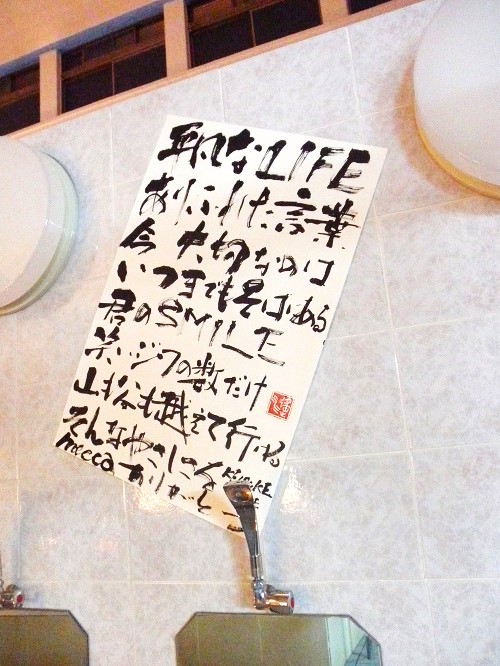 平凡なLIFE
ありふれた言葉
今大切なのは
いつまでもそばにある
君のSMILE
笑いジワの数だけ
山も谷も越えて行ける
そんなやさしさを
mecca ありがとう